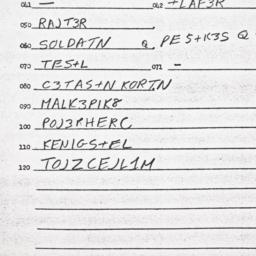 041 — 042 +LAF3R
050 RAJT3R
060 SOLDATN Q, PE5+K3S Q
070 TES+L 071 -
080 C3TAS+N KORT,N
090 MALK3PIK8
100 POJ3PHERC
110 KENIGS+EL
120 TOJZCEJL1M